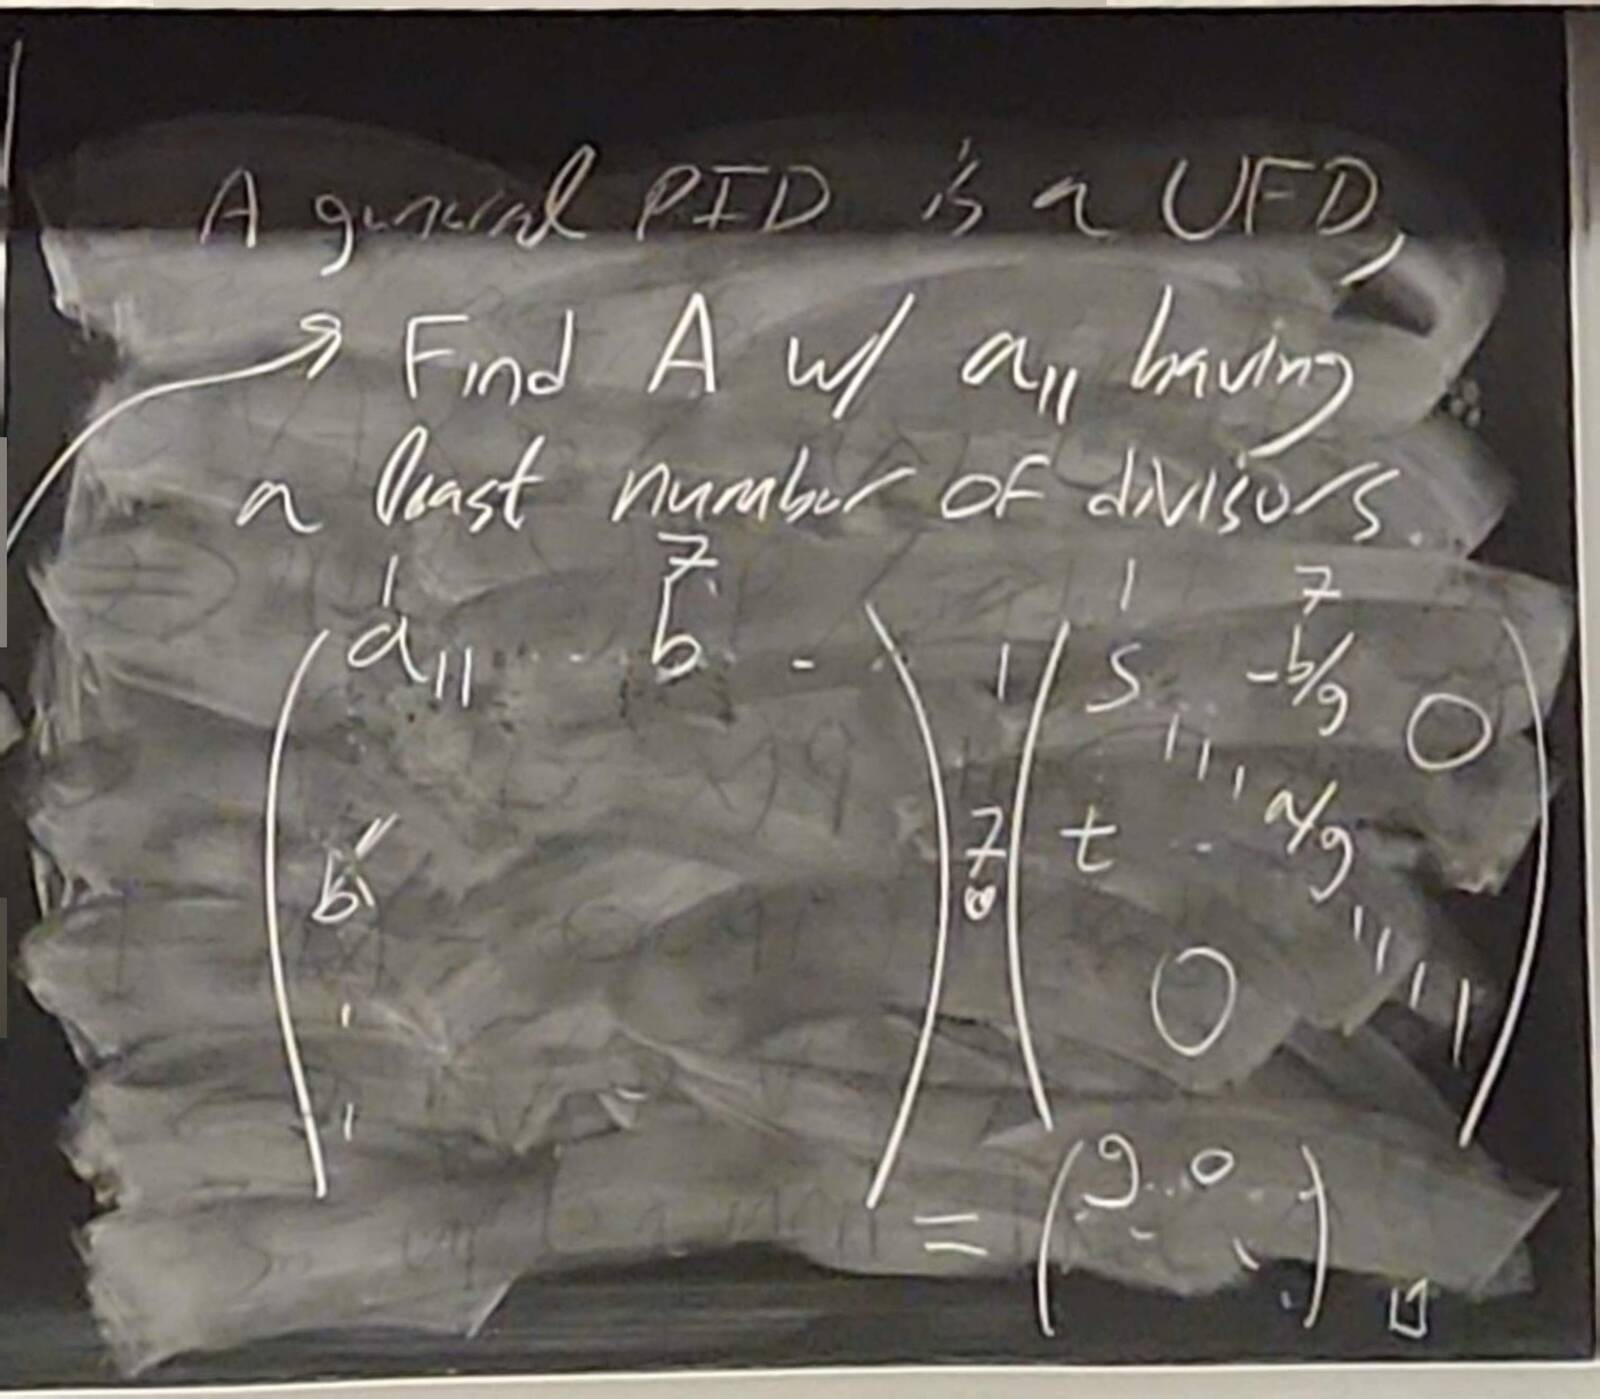 A general PID is a UFD,
→ Find A w/ a₁₁ having
a least number of divisors.
1 7 1 7
a₁₁ b 1 s -b/g 0
b' 7 t a/g
0
= g 0
□